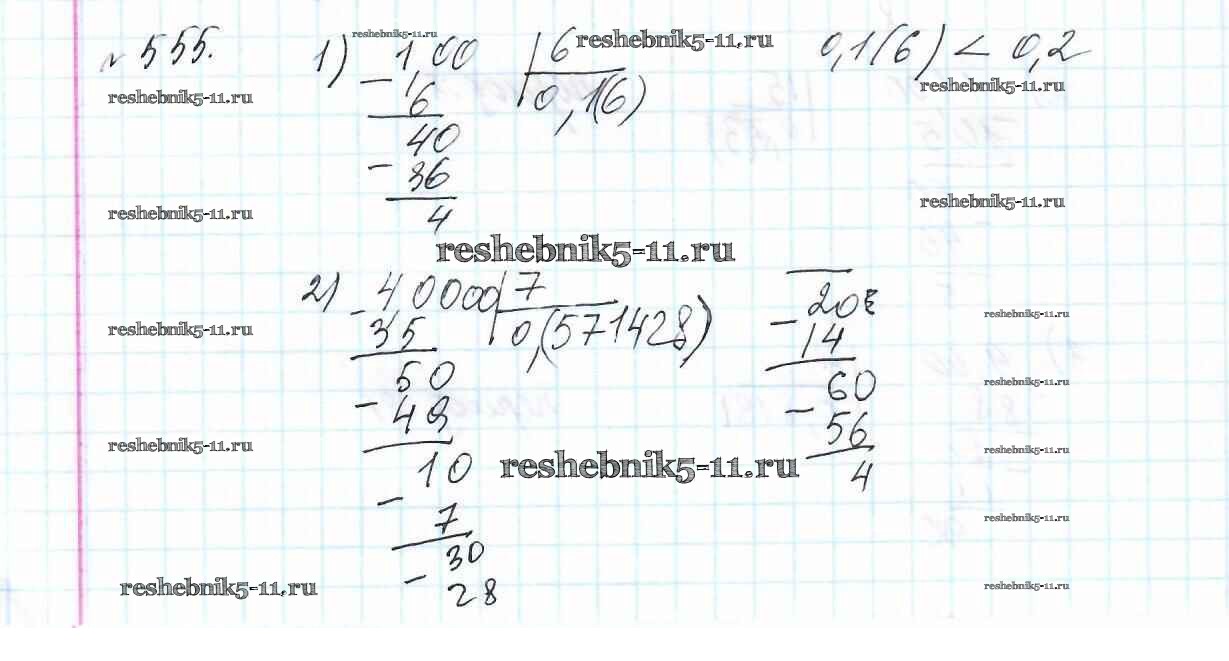 № 555.
reshebnik5-11.ru
1) 1,00 | 6
reshebnik5-11.ru
0,1(6) < 0,2
reshebnik5-11.ru
reshebnik5-11.ru
- 6
0,1(6)
40
- 36
4
reshebnik5-11.ru
reshebnik5-11.ru
reshebnik5-11.ru
2) - 40000 | 7
35
0,(571428)
50
- 49
10
- 7
30
- 28
20
- 14
60
- 56
4
reshebnik5-11.ru
reshebnik5-11.ru
reshebnik5-11.ru
reshebnik5-11.ru
reshebnik5-11.ru
reshebnik5-11.ru
reshebnik5-11.ru
reshebnik5-11.ru
reshebnik5-11.ru